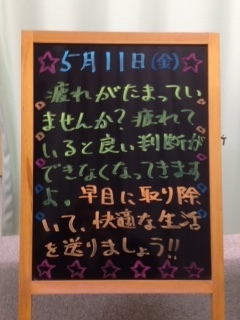 5月11日(金)
疲れがたまってい
ませんか?疲れて
いると良い判断が
できなくなってきます
よ。早目に取り除
いて、快適な生活
を送りましょう!!